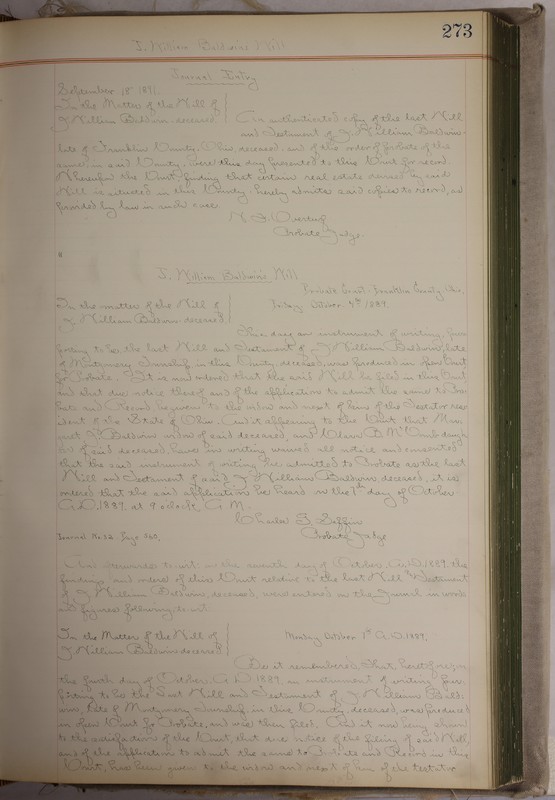 273
J. William Baldwin's Will
Journal Entry
September 18th 1891.
In the Matter of the Will of
J. William Baldwin deceased
An authenticated copy of the last Will
and Testament of J. William Baldwin
late of Franklin County, Ohio deceased, and of the order of probate of the
same in said County, were this day presented to this Court for record.
Wherefore the Court finding that certain real estate devised by said
Will is situated in this County hereby admits said copies to record, as
provided by law in such case.
Probate Judge.
J. William Baldwin's Will
Probate Court, Franklin County, Ohio,
Friday October 4th 1889.
In the matter of the Will of
J. William Baldwin deceased
This day an instrument of writing, pur-
porting to be the last Will and Testament of J. William Baldwin, late
of Montgomery Township in this County, deceased, was produced in open Court
for Probate. It is now ordered that the said Will be filed in this Court
and that due notice thereof and of the application to admit the same to Pro-
bate and Record, be given to the widow and next of kin of the Testator res-
ident of the State of Ohio. And it appearing to the Court that Mar-
garet J. Baldwin widow of said deceased, and B. Mc daugh-
ter of said deceased, have in writing waived all notice and consented
that the said instrument of writing be admitted to Probate as the last
Will and Testament of said J. William Baldwin, deceased, it is
ordered that the said application be heard on the 7th day of October
A.D. 1889, at 9 o'clock, A.M.
Charles G. Saffin
Probate Judge
Journal No. 32. Page 360.
And afterwards to wit, on the seventh day of October A.D. 1889, the
findings and orders of this Court relative to the last Will & Testament
of J. William Baldwin, deceased, were entered on the Journal in words
and figures following, to wit:
In the Matter of the Will of
J. William Baldwin deceased
Monday October 7th A.D. 1889.
Be it remembered, That heretofore, on
the fourth day of October, A.D. 1889, an instrument of writing pur-
porting to be the Last Will and Testament of J. William Bald-
win, late of Montgomery Township in this County, deceased, was produced
in open Court for Probate, and was then filed. And it now being shown
to the satisfaction of the Court, that due notice of the filing of said Will,
and of the application to admit the same to Probate and Record in this
Court, has been given to the widow and next of kin of the testator